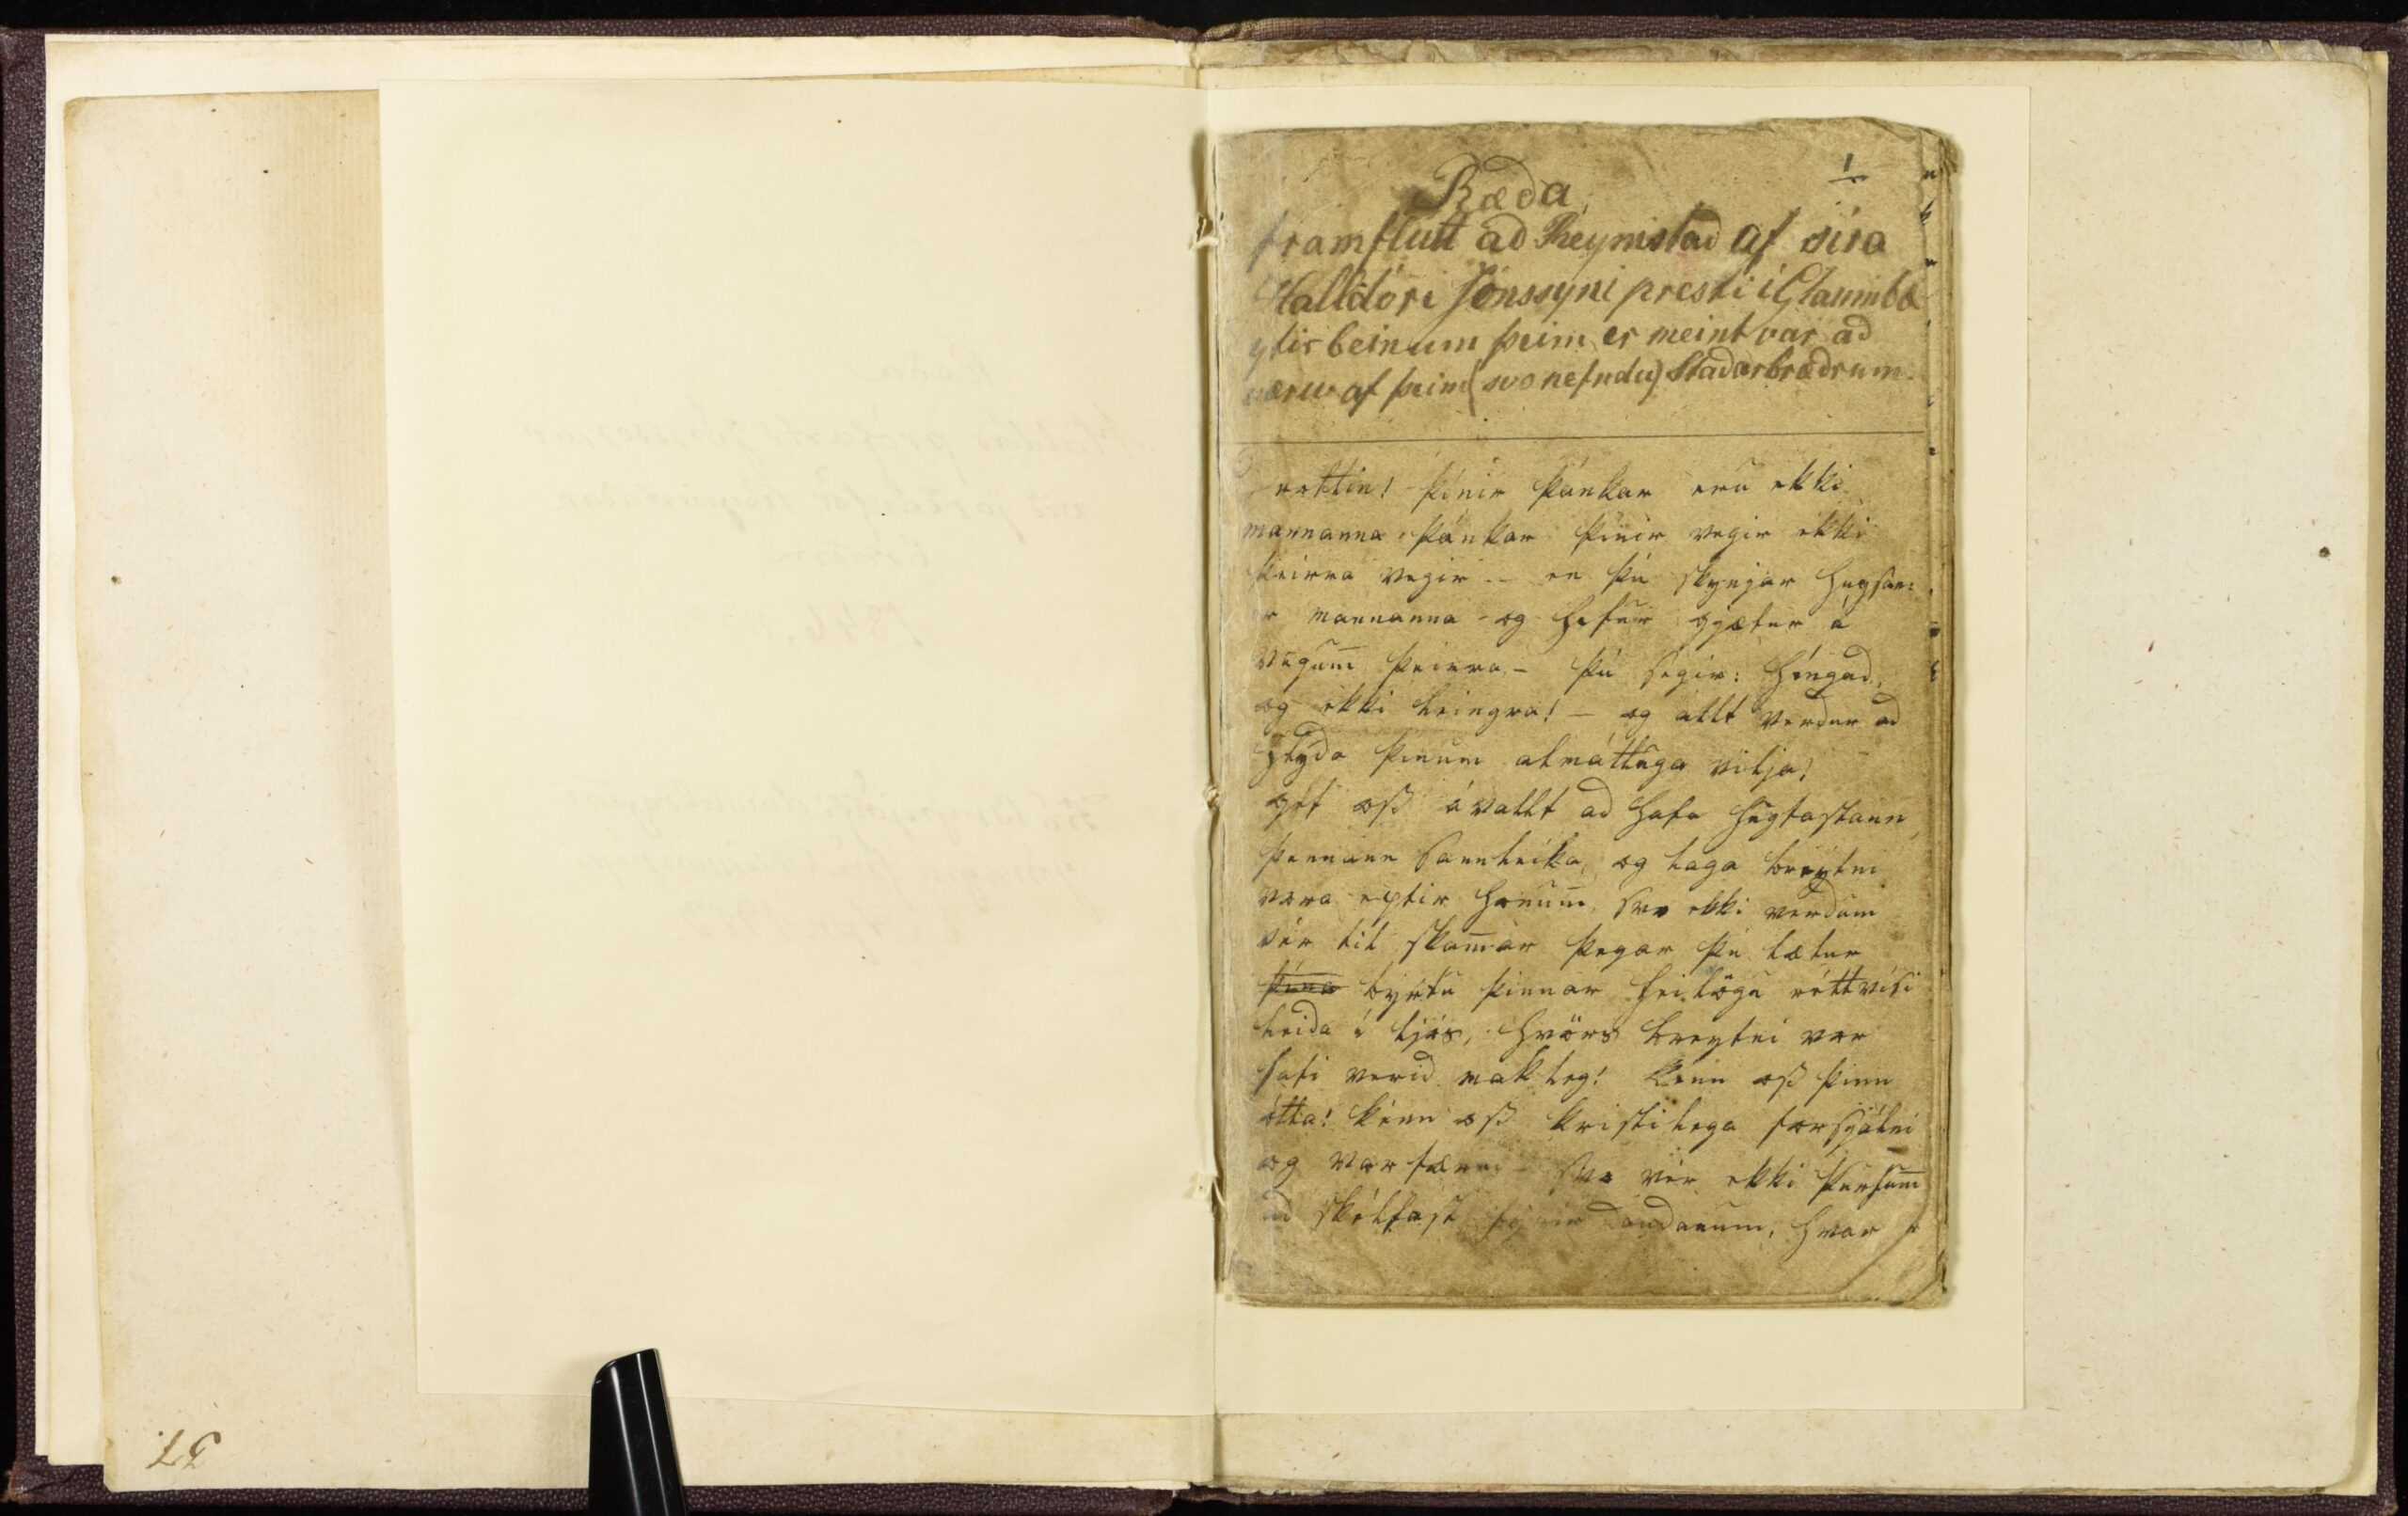 1
Ræda
framflutt ad Reynistad af síra
Halldóri Jónssyni presti í Glaumbæ
yfir beinum þeim er meint var ad
væru af þeim (svo nefndu) Stadarbrædrum.
Drottin! þínir þánkar eru ekki
mannanna þánkar þínir vegir ekki
þeirra vegir -- en þú skynjar hugsan:
ir mannanna og hefur gjætur á
vegum̅ þeirra - þú segir: híngad,
og ekki leingra! - og allt verdur ad
hlýda þínum almáttuga vilja!
gef oss ávallt ad hafa hugfastann
þennann sannleika, og laga breytni
vora eptir honum̅, svo ekki verdum
vér til skam̅ar þegar þú lætur
þína byrtu þinnar heilögu réttvísi
leida í ljós, hvörs breytni vor
hafi verid makleg! Kenn oss þinn
ótta! kenn oss kristilega forsjálni
og varfærni svo vér ekki þurfum̅
ad skélfast fyrir daudanum, hvar
57.